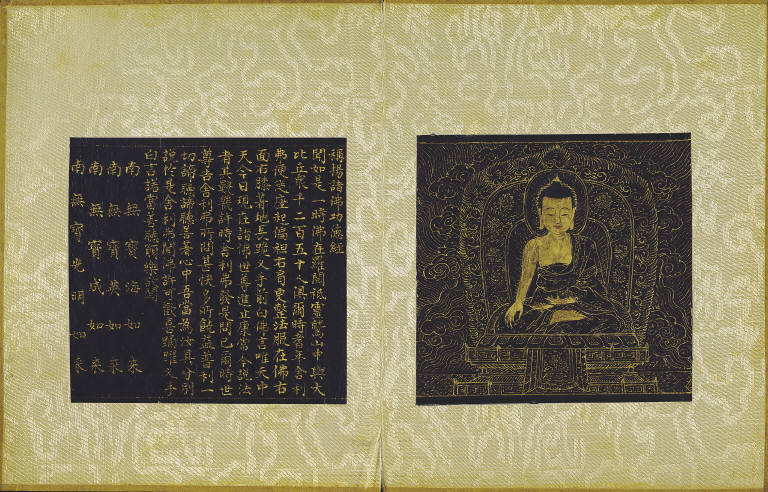 稱揚諸佛功德經
聞如是一時佛在羅閱祇靈鷲山中與大
比丘眾千二百五十人俱爾時耆年舍利
弗便從座起偏袒右肩更整法服在佛右
面右膝著地長跪叉手前白佛言唯天中
天今日現在諸佛世尊進止康常今說法
者其數幾許時舍利弗發是問已爾時世
尊告舍利弗所問甚快多所饒益普利一
切諦聽諦聽善著心中吾當為汝具分別
說於是舍利弗聞佛許可歡喜踊躍叉手
白言諾當善聽願樂欲聞
南無寶海如來
南無寶英如來
南無寶成如來
南無寶光明如來